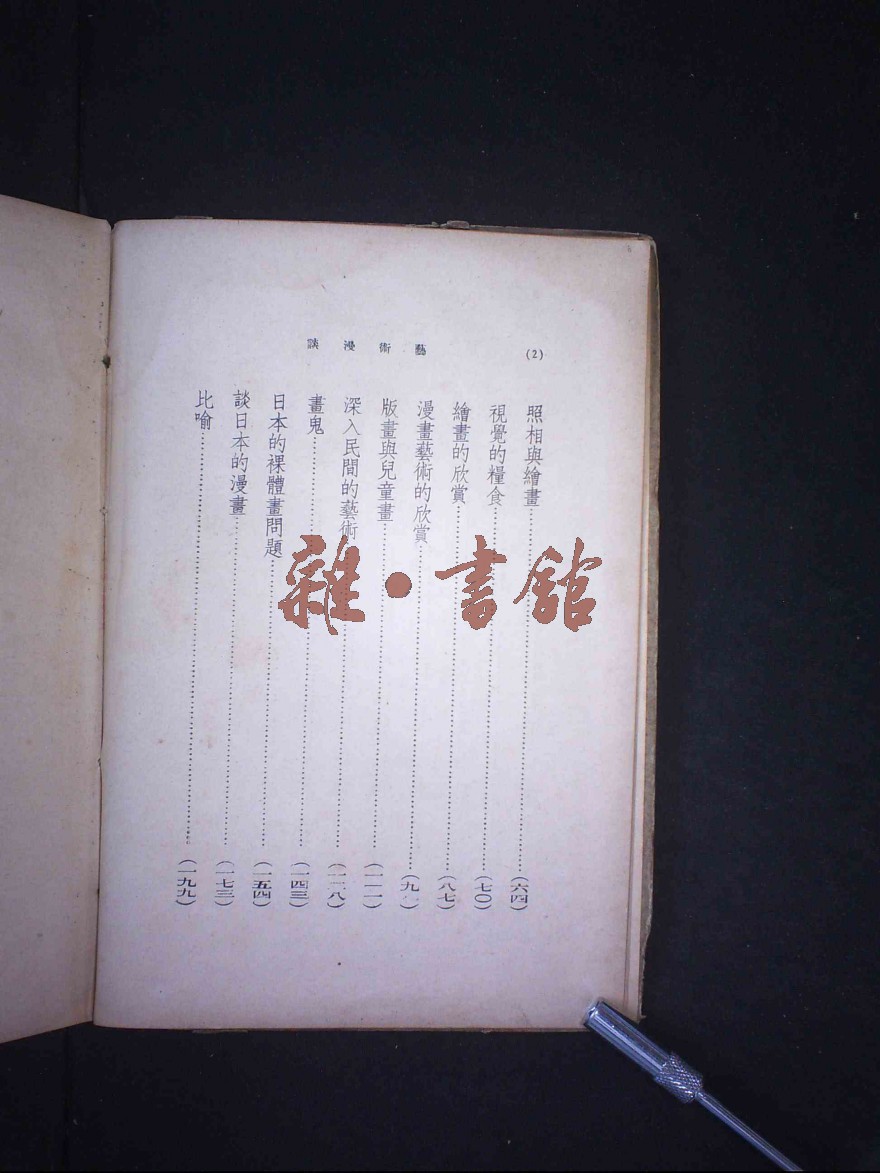 (2)
藝術漫談
照相與繪畫……(六四)
視覺的糧食……(七〇)
繪畫的欣賞……(八七)
漫畫藝術的欣賞……
版畫與兒童畫……(一一一)
深入民間的藝術……
畫鬼……(一四三)
日本的裸體畫問題……(一五四)
談日本的漫畫……(一七三)
比喻……(一九九)
雜•書館